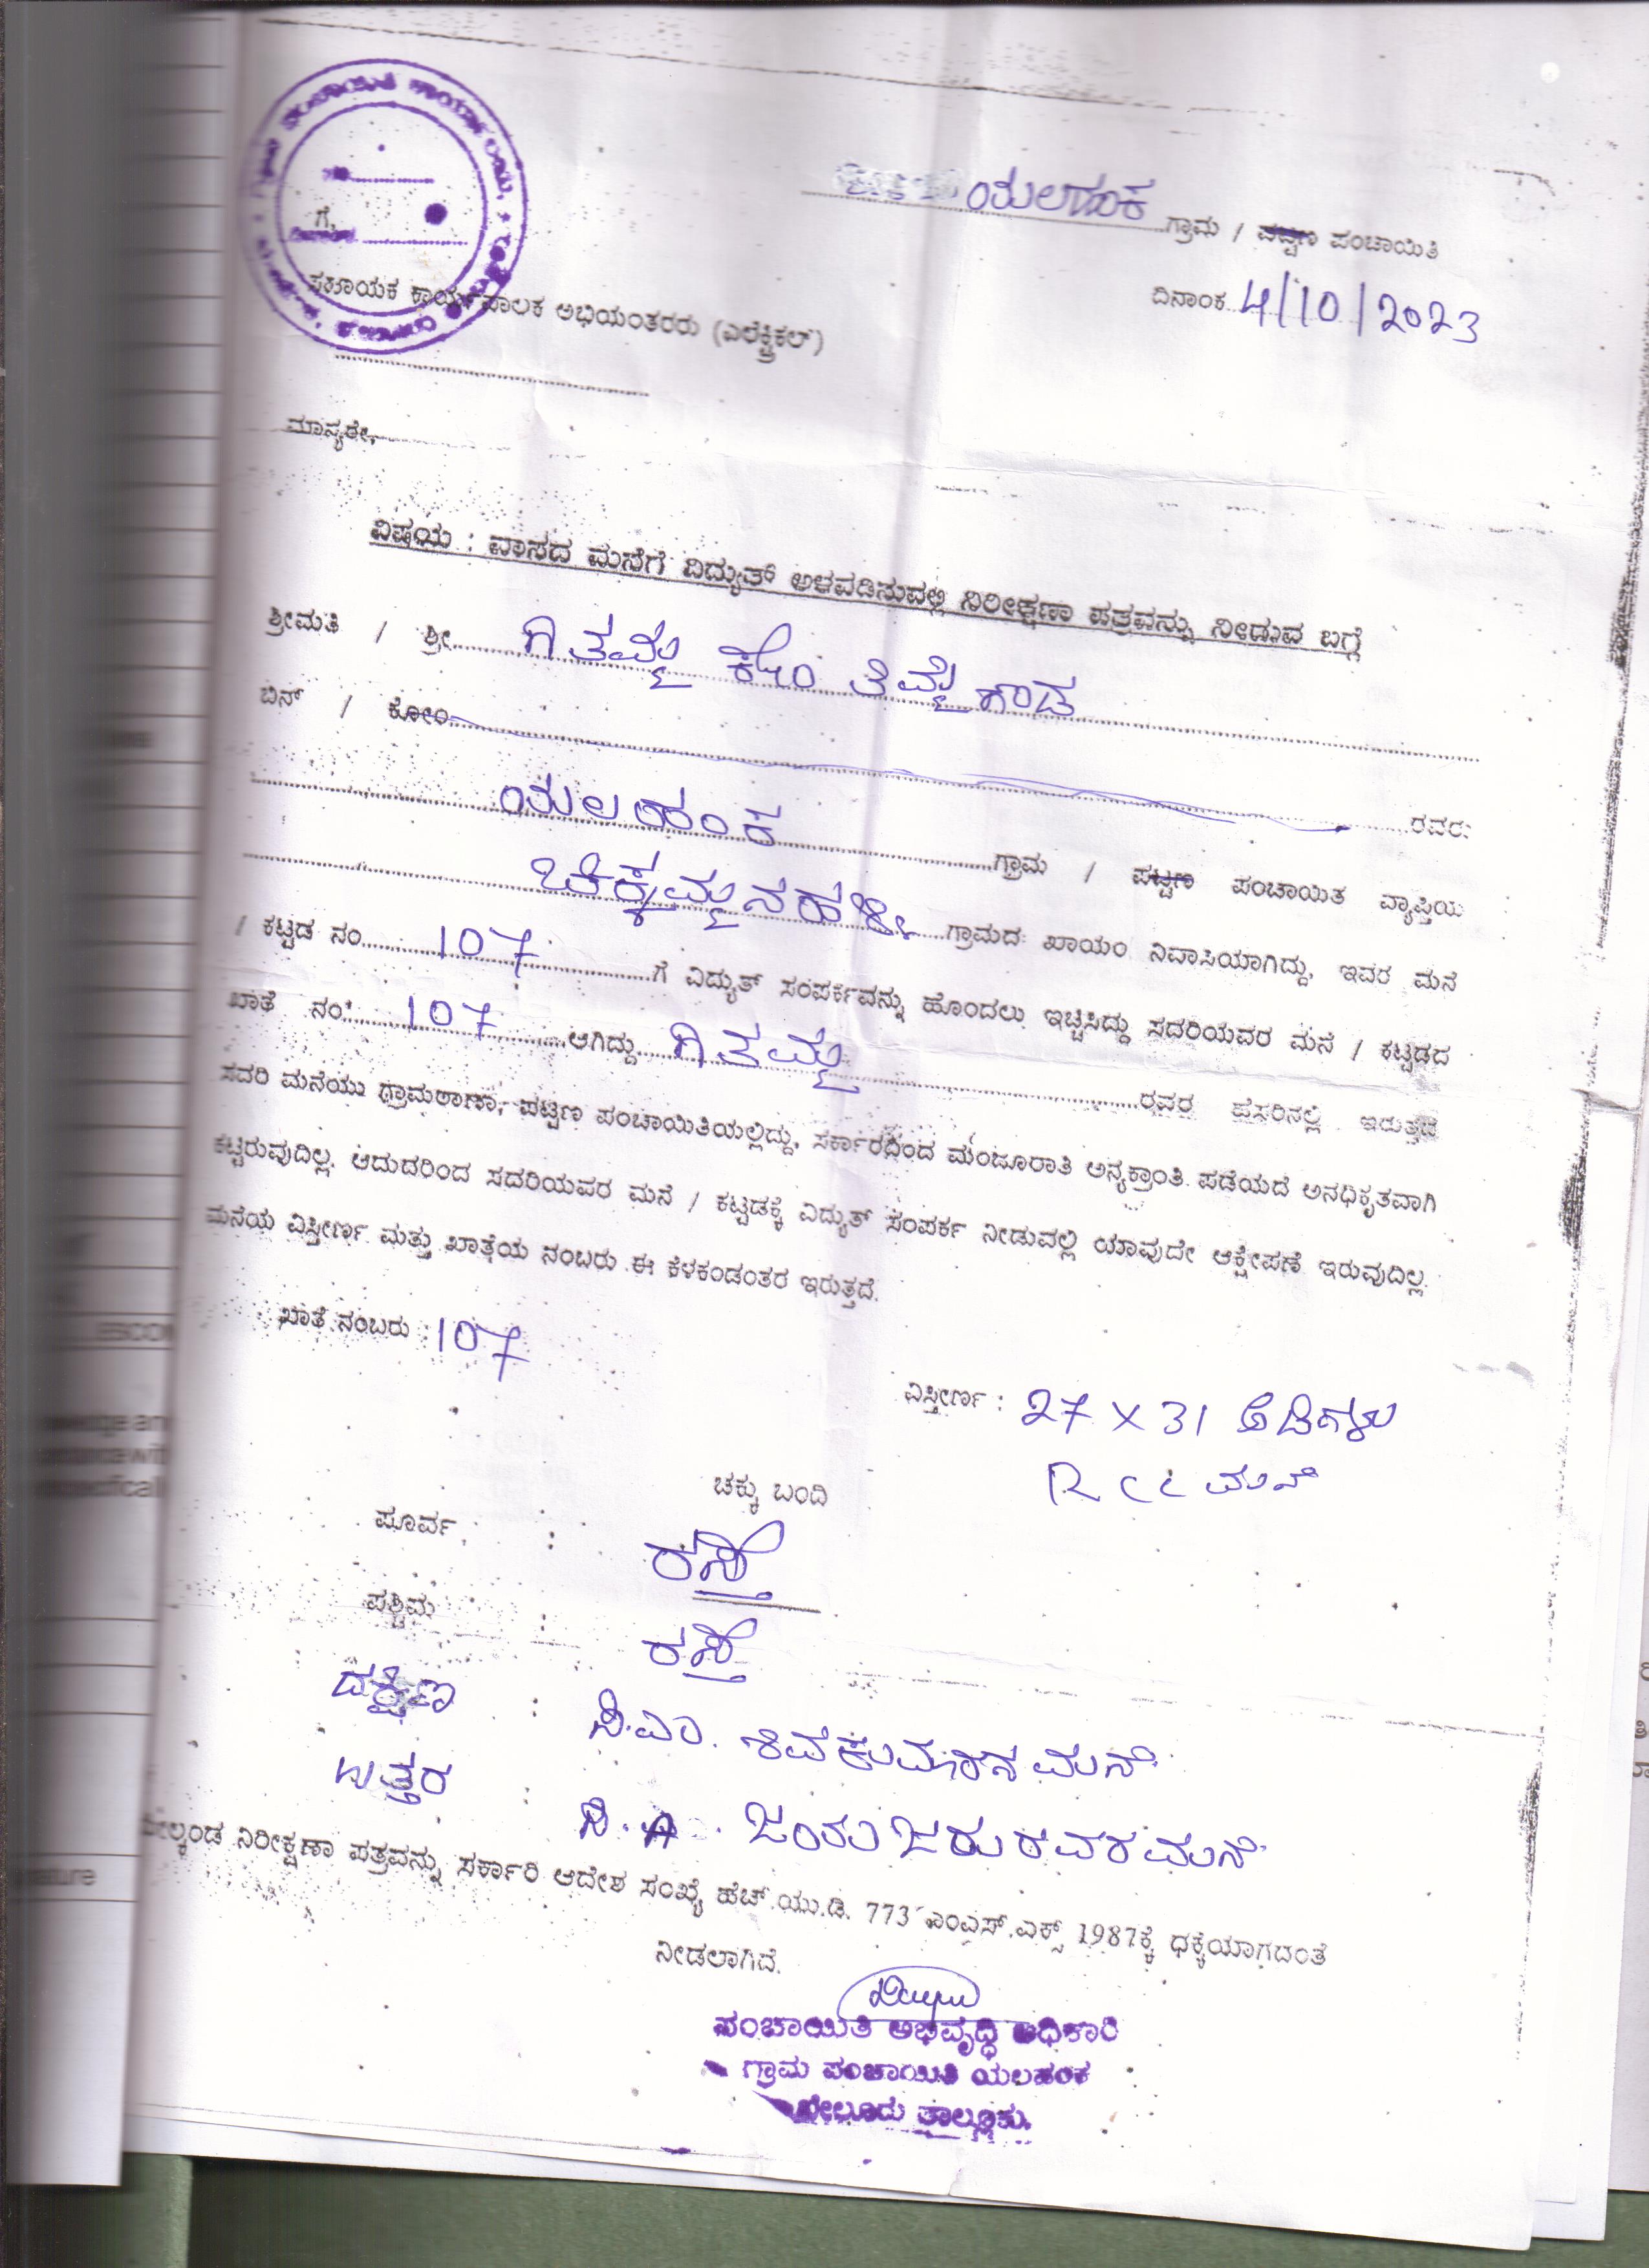 ಯಲಹಂಕ ಗ್ರಾಮ / ಪಟ್ಟಣ ಪಂಚಾಯಿತಿ
ದಿನಾಂಕ 4/10/2023
ಗೆ,
ಸಹಾಯಕ ಕಾರ್ಯಪಾಲಕ ಅಭಿಯಂತರರು (ಎಲೆಕ್ಟ್ರಿಕಲ್)
ಮಾನ್ಯರೇ,
ವಿಷಯ : ವಾಸದ ಮನೆಗೆ ವಿದ್ಯುತ್ ಅಳವಡಿಸುವಲ್ಲಿ ನಿರೀಕ್ಷಣಾ ಪತ್ರವನ್ನು ನೀಡುವ ಬಗ್ಗೆ
ಶ್ರೀಮತಿ / ಶ್ರೀ ಗಿತಮ್ಮ ಕೋಂ ತಿಮ್ಮೇಗೌಡ
ಬಿನ್ / ಕೋಂ ರವರು
ಯಲಹಂಕ ಗ್ರಾಮ / ಪಟ್ಟಣ ಪಂಚಾಯಿತ ವ್ಯಾಪ್ತಿಯ
ಚಿಕ್ಕಮ್ಮನಹಳ್ಳಿ ಗ್ರಾಮದ ಖಾಯಂ ನಿವಾಸಿಯಾಗಿದ್ದು, ಇವರ ಮನೆ
/ ಕಟ್ಟಡ ನಂ 107 ಗೆ ವಿದ್ಯುತ್ ಸಂಪರ್ಕವನ್ನು ಹೊಂದಲು ಇಚ್ಚಿಸಿದ್ದು ಸದರಿಯವರ ಮನೆ / ಕಟ್ಟಡದ
ಖಾತೆ ನಂ 107 ಆಗಿದ್ದು ಗಿತಮ್ಮ ರವರ ಹೆಸರಿನಲ್ಲಿ ಇರುತ್ತದೆ
ಸದರಿ ಮನೆಯು ಗ್ರಾಮಠಾಣಾ, ಪಟ್ಟಣ ಪಂಚಾಯಿತಿಯಲ್ಲಿದ್ದು, ಸರ್ಕಾರದಿಂದ ಮಂಜೂರಾತಿ ಅನ್ಯಕ್ರಾಂತಿ ಪಡೆಯದೆ ಅನಧಿಕೃತವಾಗಿ
ಕಟ್ಟಿರುವುದಿಲ್ಲ. ಆದುದರಿಂದ ಸದರಿಯವರ ಮನೆ / ಕಟ್ಟಡಕ್ಕೆ ವಿದ್ಯುತ್ ಸಂಪರ್ಕ ನೀಡುವಲ್ಲಿ ಯಾವುದೇ ಆಕ್ಷೇಪಣೆ ಇರುವುದಿಲ್ಲ.
ಮನೆಯ ವಿಸ್ತೀರ್ಣ ಮತ್ತು ಖಾತೆಯ ನಂಬರು ಈ ಕೆಳಕಂಡಂತರ ಇರುತ್ತದೆ.
ಖಾತೆ ನಂಬರು : 107
ವಿಸ್ತೀರ್ಣ : 27 X 31 ಅಡಿಗಳು
RCC ಮನೆ
ಚಕ್ಕು ಬಂದಿ
ಪೂರ್ವ : ರಸ್ತೆ
ಪಶ್ಚಿಮ : ರಸ್ತೆ
ದಕ್ಷಿಣ : ಸಿ.ಎಂ. ಶಿವಕುಮಾರನ ಮನೆ
ಉತ್ತರ : ರವರ ಮನೆ
ಮೇಲ್ಕಂಡ ನಿರೀಕ್ಷಣಾ ಪತ್ರವನ್ನು ಸರ್ಕಾರಿ ಆದೇಶ ಸಂಖ್ಯೆ ಹೆಚ್.ಯು.ಡಿ. 773 ಎಂಎಸ್.ಎಕ್ಸ್ 1987ಕ್ಕೆ ಧಕ್ಕೆಯಾಗದಂತೆ
ನೀಡಲಾಗಿದೆ.
ಪಂಚಾಯಿತಿ ಅಭಿವೃದ್ಧಿ ಅಧಿಕಾರಿ
ಗ್ರಾಮ ಪಂಚಾಯಿತಿ ಯಲಹಂಕ
ಬೇಲೂರು ತಾಲ್ಲೂಕು.